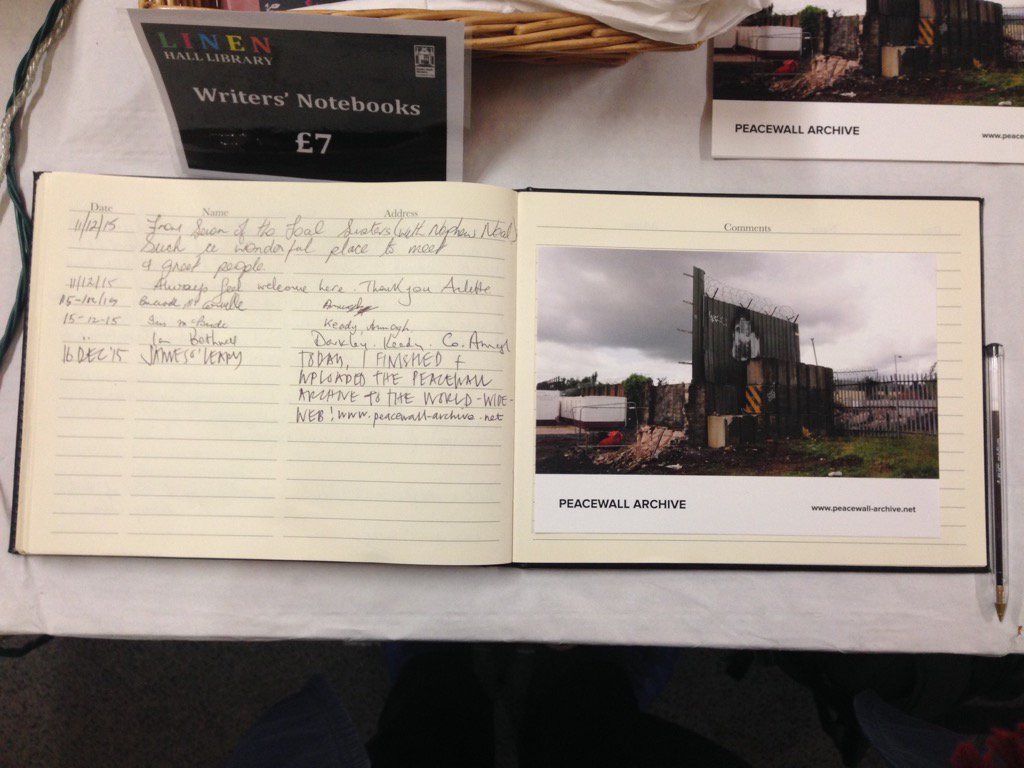 LINEN
HALL LIBRARY
Writers' Notebooks
£7
PEACEWALL ARCHIVE
www.peace
Date Name Address
11/12/15 From Susan of the Sisters (with Nephew Noel)
Such a wonderful place to meet
& great people
11/12/15 Always feel welcome here. Thank you Arlette
15-12-15
15-12-15 Jim McBride Keady Armagh
" Ian Bothwell Darkley. Keady. Co. Armagh
16 DEC '15 JAMES O'LEARY TODAY, I FINISHED +
UPLOADED THE PEACEWALL
ARCHIVE TO THE WORLD-WIDE-
WEB! www.peacewall-archive.net
Comments
PEACEWALL ARCHIVE
www.peacewall-archive.net